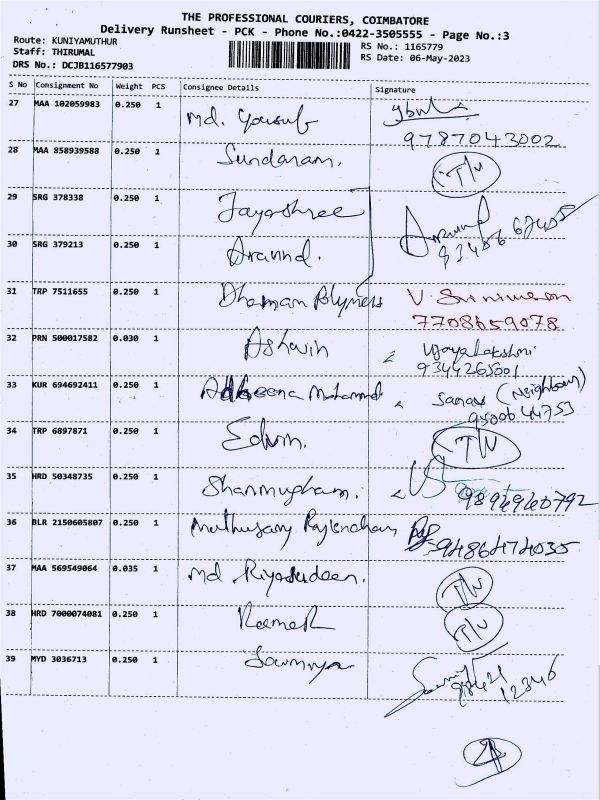 THE PROFESSIONAL COURIERS, COIMBATORE
Delivery Runsheet - PCK - Phone No.:0422-3505555 - Page No.:3
Route: KUNIYAMUTHUR RS No.: 1165779
Staff: THIRUMAL RS Date: 06-May-2023
DRS No.: DCJB116577903
S No Consignment No Weight PCS Consignee Details Signature
27 MAA 102059983 0.250 1 Md. Yousuf
9787043002
28 MAA 858939588 0.250 1 Sundaram. T/W
29 SRG 378338 0.250 1 Jayashree
30 SRG 379213 0.250 1 Aravind. Aravind
31 TRP 7511655 0.250 1 Dhaman Polymers V. Srinivasan
7708659078
32 PRN 500017582 0.030 1 Ashwin Vijayalakshmi
9344265001
33 KUR 694692411 0.250 1 Mohammed (Neighbour)
34 TRP 6897871 0.250 1 Edwin. T/W
35 HRD 50348735 0.250 1 Shanmugham.
9894940792
36 BLR 2150605807 0.250 1 Muthusamy
9486474035
37 MAA 569549064 0.035 1 Md Riyasudeen. T/W
38 HRD 7000074081 0.250 1 T/W
39 MYD 3036713 0.250 1 Sowmya